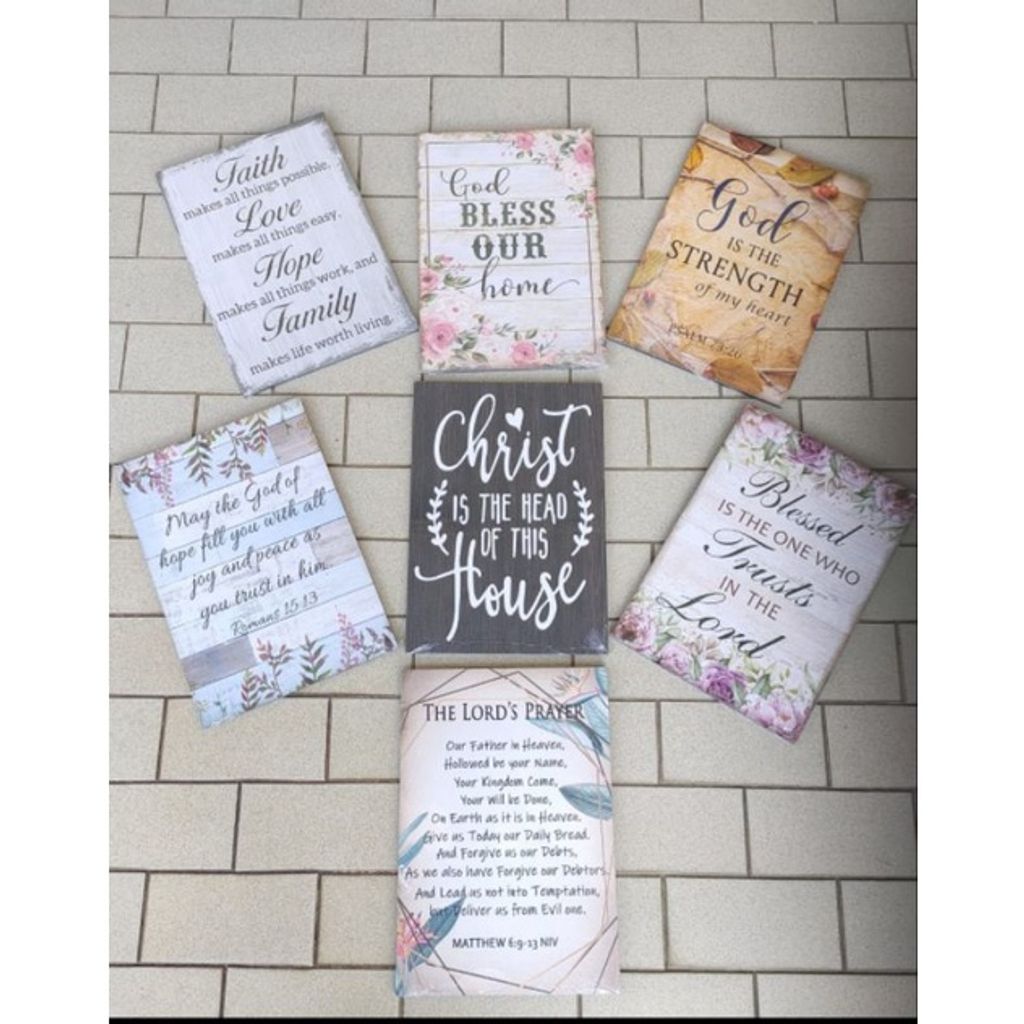 Faith
makes all things possible,
Love
makes all things easy,
Hope
makes all things work, and
Family
makes life worth living.
God
BLESS
OUR
home
God
IS THE
STRENGTH
of my heart
PSALM 73:26
May the God of
hope fill you with all
joy and peace as
you trust in him.
Romans 15:13
Christ
IS THE HEAD
OF THIS
House
Blessed
IS THE ONE WHO
Trusts
IN THE
Lord
THE LORD'S PRAYER
Our Father in Heaven,
Hollowed be your Name,
Your Kingdom Come,
Your Will be Done,
On Earth as it is in Heaven.
Give us Today our Daily Bread.
And Forgive us our Debts,
As we also have Forgive our Debtors.
And Lead us not into Temptation,
but Deliver us from Evil one.
MATTHEW 6:9-13 NIV